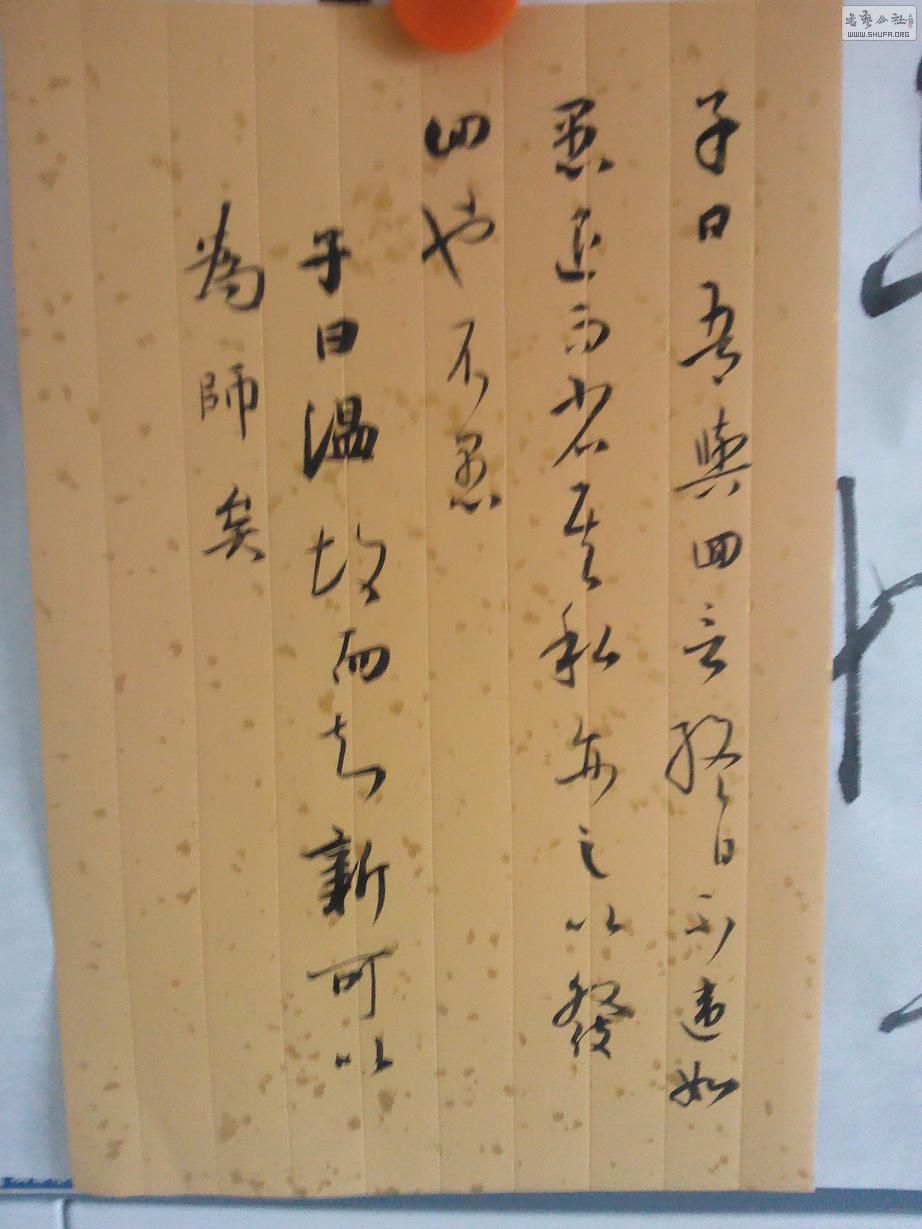 子曰吾與回言終日不違如
愚退而省其私亦足以發
回也不愚
子曰温故而知新可以
為師矣
書藝公社
WWW.SHUFA.ORG